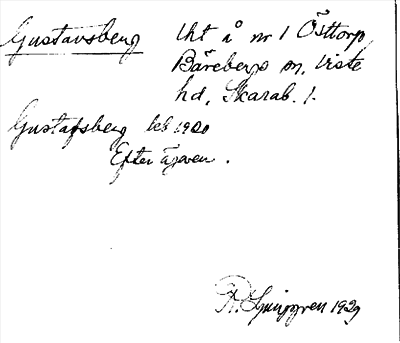 Gustavsberg lht å nr 1 Östtorp,
Bärebergs sn, Viste
hd, Skarab. l.
Gustafsberg leb 1920
Efter ägaren.
R. Ljunggren 1929